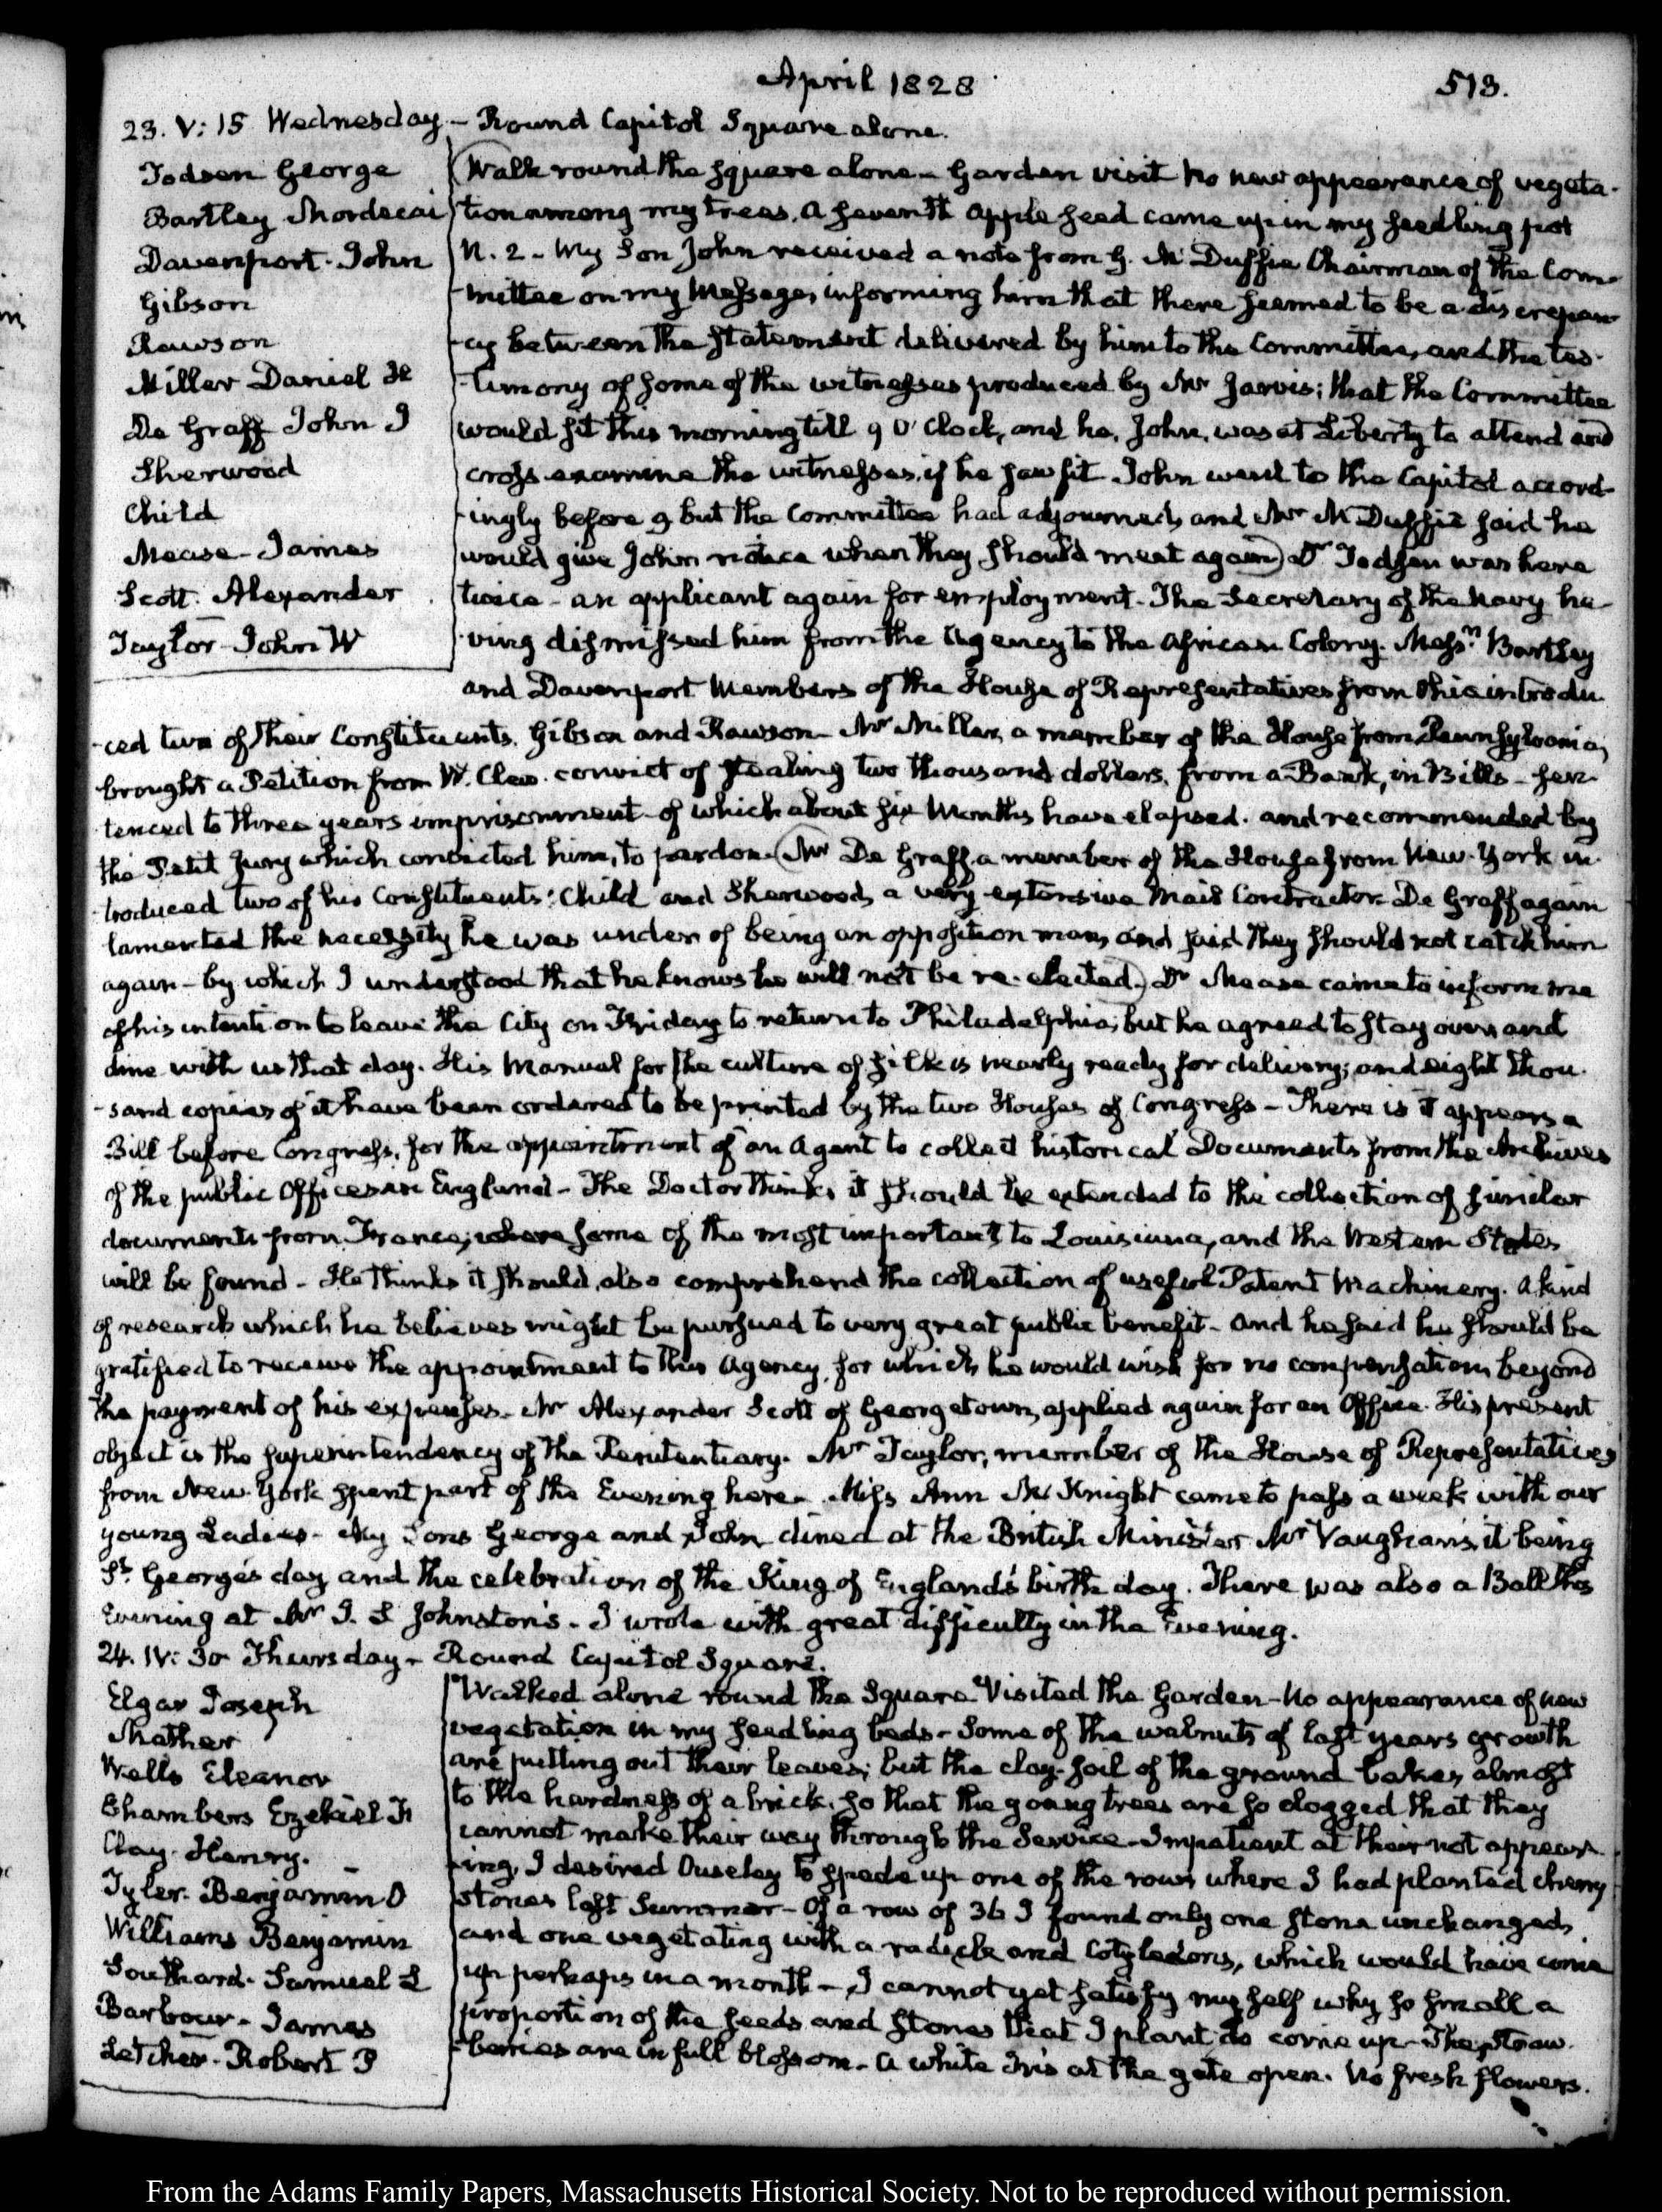 April 1828
513.
23. V:15 Wednesday – Round Capitol Square alone.
Todsen George
Bartley Mordecai
Davenport. John
Gibson
Rawson
Miller Daniel H
De Graff John I
Sherwood
Child
Mease – James
Scott. Alexander
Taylor – John W
Walk round the square alone – Garden visit no new appearance of vegeta-
tion among my trees. A seventh apple seed came up in my seedling pot
N. 2 – My Son John received a note from G. McDuffie Chairman of the Com-
mittee on my Message, informing him that there seemed to be a discrepan-
cy between the statement delivered by him to the Committee, and the tes-
timony of some of the witnesses produced by Mr Jarvis; that the Committee
would sit this morning till 9 O'Clock, and he, John, was at Liberty to attend and
cross-examine the witnesses, if he saw fit. John went to the Capitol accord-
ingly before 9 but the Committee had adjourned, and Mr McDuffie said he
would give John notice when they should meet again) Dr Todsen was here
twice – an applicant again for employment. The Secretary of the Navy ha-
ving dismissed him from the Agency to the African Colony. Messrs Bartley
and Davenport Members of the House of Representatives from Ohio introdu-
ced two of their Constituents, Gibson and Rawson – Mr Miller, a member of the House from Pennsylvania,
brought a Petition from W. Clew. convict of stealing two thousand dollars, from a Bank, in Bills – sen-
tenced to three years imprisonment – of which about six Months have elapsed. and recommended by
the Petit Jury which convicted him, to pardon. (Mr De Graff, a member of the House from New-York in-
troduced two of his Constituents; Child and Sherwood, a very extensive Mail Contractor. De Graff again
lamented the necessity he was under of being an opposition man, and said they should not catch him
again – by which I understood that he knows he will not be re-elected.) Dr Mease came to inform me
of his intention to leave the City on Friday to return to Philadelphia, but he agreed to stay over and
dine with us that day. His Manual for the culture of silk is nearly ready for delivery; and eight thou-
sand copies of it have been ordered to be printed by the two Houses of Congress – There is it appears a
Bill before Congress, for the appointment of an Agent to collect historical Documents from the Archives
of the public Offices in England – The Doctor thinks it should be extended to the collection of similar
documents from France; where some of the most important to Louisiana, and the Western States
will be found – He thinks it should also comprehend the collection of useful Patent Machinery. A kind
of research which he believes might be pursued to very great public benefit – and he said he should be
gratified to receive the appointment to this Agency, for which he would wish for no compensation beyond
the payment of his expenses. Mr Alexander Scott of Georgetown, applied again for an Office. His present
object is the superintendency of the Penitentiary. Mr Taylor, member of the House of Representatives
from New-York spent part of the Evening here – Miss Ann McKnight came to pass a week with our
young Ladies – My Sons George and John dined at the British Minister Mr Vaughan's, it being
St. George's day and the celebration of the King of England's birth day. There was also a Ball this
Evening at Mr J. S Johnston's – I wrote with great difficulty in the Evening.
24. IV:30 Thursday – Round Capitol Square.
Elgar Joseph
Mather
Wells Eleanor
Chambers Ezekiel F
Clay. Henry.
Tyler. Benjamin O
Williams Benjamin
Southard. Samuel L
Barbour – James
Letcher – Robert P
Walked alone round the Square Visited the Garden – No appearance of new
vegetation in my seedling beds – Some of the walnuts of last years growth
are putting out their leaves; but the clay-soil of the ground bakes almost
to the hardness of a brick, so that the young trees are so clogged that they
cannot make their way through the Service – Impatient at their not appear-
ing, I desired Ouseley to spade up one of the rows where I had planted cherry
stones last Summer – Of a row of 36 I found only one stone unchanged,
and one vegetating with a radicle and Cotyledons, which would have come
up perhaps in a month – I cannot yet satisfy myself why so small a
proportion of the seeds and stones that I plant, do come up – The straw-
berries are in full blossom – a white Iris at the gate open. No fresh flowers.
From the Adams Family Papers, Massachusetts Historical Society. Not to be reproduced without permission.